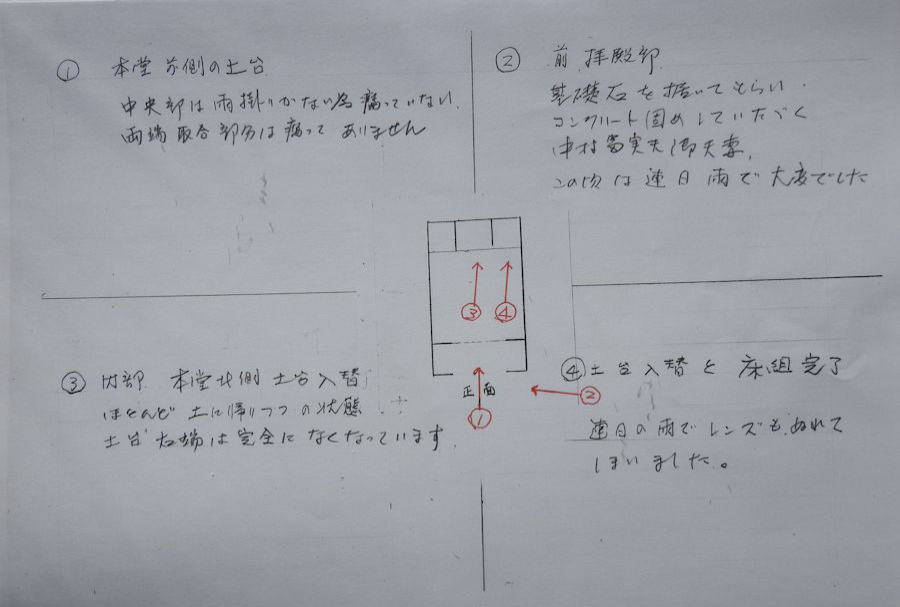 ① 本堂 前側の土台
中央部は雨掛りがない為 腐っていない
両端 取合部分は腐って ありません
② 前 拝殿部
基礎石を据いてもらい、
コンクリート固めしていただく
中村 実夫 御夫妻、
この頃は 連日 雨で 大変でした
③
④
正面
②
①
③ 内部 本堂北側 土台入替
ほとんど 土に帰りつつの状態
土台 右端は完全になくなっています
④ 土台入替と 床組完了
連日の雨で レンズも ぬれて
しまいました。